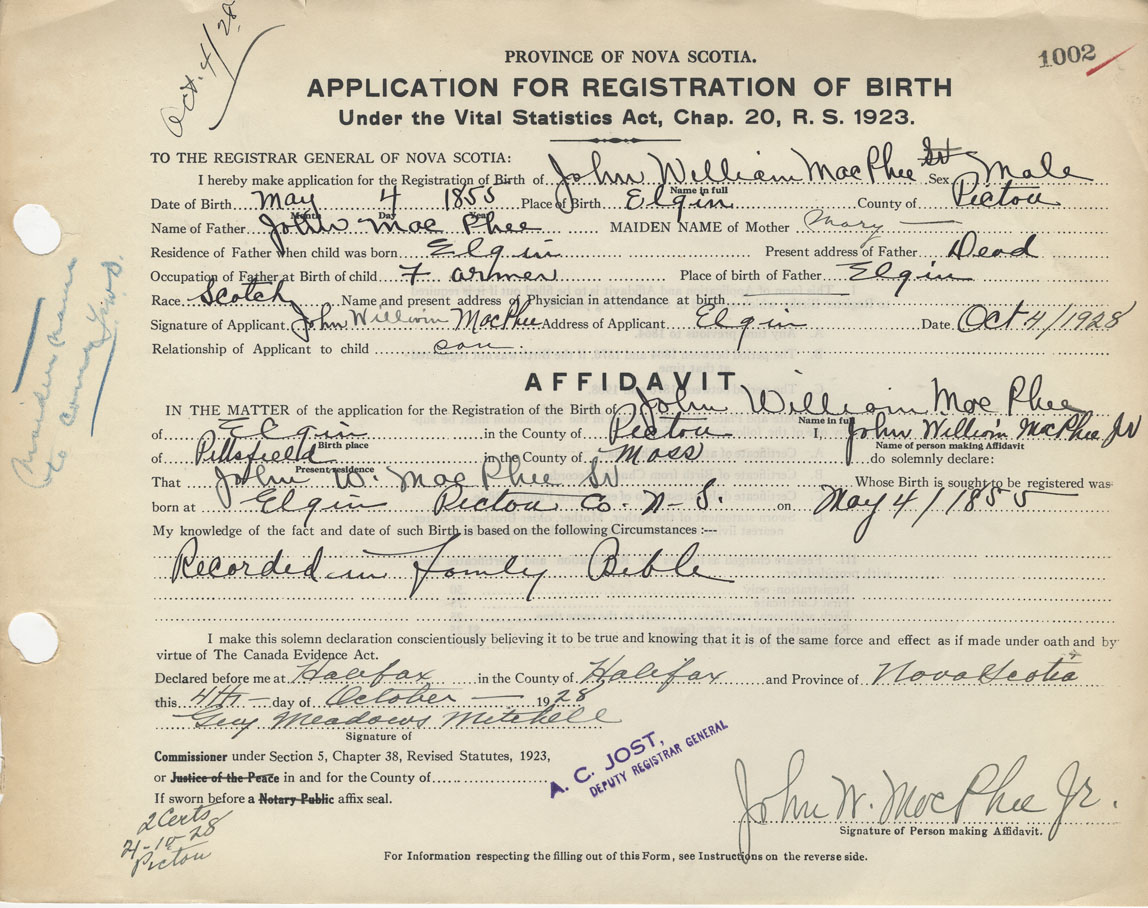 Oct. 4/28
1002
PROVINCE OF NOVA SCOTIA.
APPLICATION FOR REGISTRATION OF BIRTH
Under the Vital Statistics Act, Chap. 20, R. S. 1923.
TO THE REGISTRAR GENERAL OF NOVA SCOTIA:
I hereby make application for the Registration of Birth of John William MacPhee Sr Sex Male
Name in full
Date of Birth May 4 1855 Place of Birth Elgin County of Pictou
Month Day Year
Name of Father John Mac Phee MAIDEN NAME of Mother Mary
Residence of Father when child was born Elgin Present address of Father Dead
Occupation of Father at Birth of child Farmer Place of birth of Father Elgin
Race Scotch Name and present address of Physician in attendance at birth
Signature of Applicant John William MacPhee Address of Applicant Elgin Date Oct 4/1928
Relationship of Applicant to child son.
AFFIDAVIT
IN THE MATTER of the application for the Registration of the Birth of John William Mac Phee
Name in full
of Elgin in the County of Pictou I, John William MacPhee Jr
Birth place Name of person making Affidavit
of Pittsfield in the County of Mass do solemnly declare:
Present residence
That John W. MacPhee Sr Whose Birth is sought to be registered was
born at Elgin Pictou Co. N-S. on May 4/1855
My knowledge of the fact and date of such Birth is based on the following Circumstances :—
Recorded in Family Bible
I make this solemn declaration conscientiously believing it to be true and knowing that it is of the same force and effect as if made under oath and by
virtue of The Canada Evidence Act.
Declared before me at Halifax in the County of Halifax and Province of Nova Scotia
this 4th day of October 1928
Guy Meadows Mitchell
Signature of
Commissioner under Section 5, Chapter 38, Revised Statutes, 1923,
or Justice of the Peace in and for the County of
If sworn before a Notary Public affix seal.
A. C. JOST,
DEPUTY REGISTRAR GENERAL
John W. MacPhee Jr.
Signature of Person making Affidavit.
2 Certs
21-10-28
Pictou
For Information respecting the filling out of this Form, see Instructions on the reverse side.
maiden name
to come